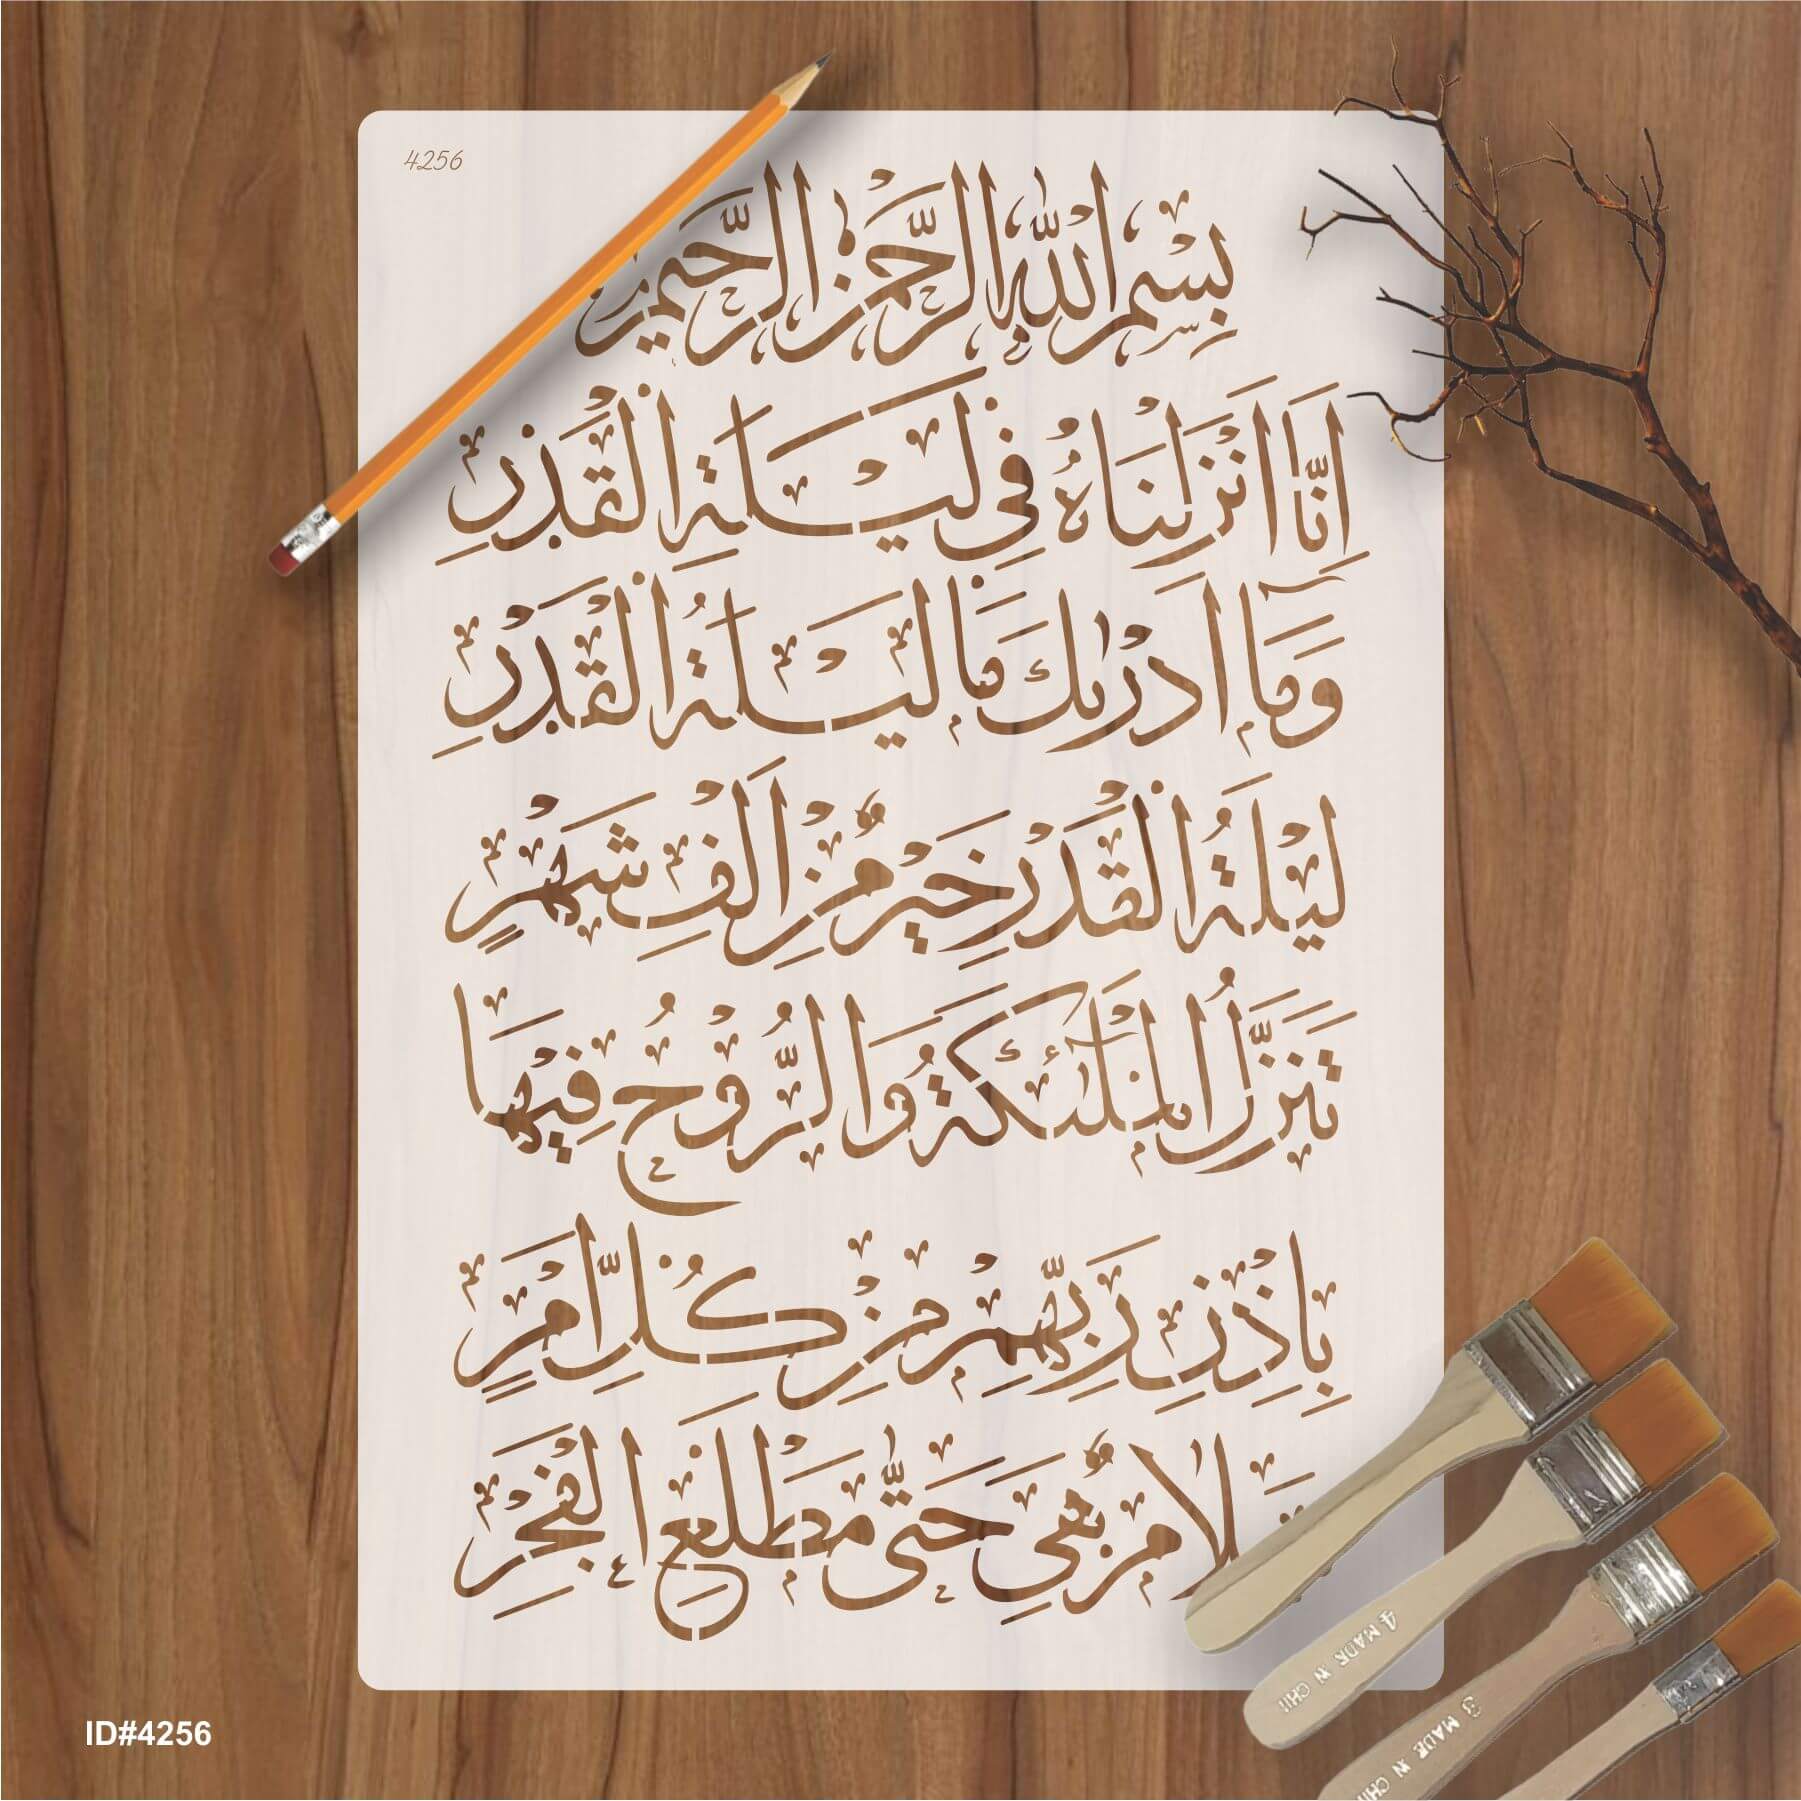 4256
بِسْمِ اللّٰهِ الرَّحْمٰنِ الرَّحِيمِ
اِنَّا اَنْزَلْنَاهُ فِي لَيْلَةِ الْقَدْرِ
وَمَآ اَدْرٰىكَ مَا لَيْلَةُ الْقَدْرِ
لَيْلَةُ الْقَدْرِ خَيْرٌ مِنْ اَلْفِ شَهْرٍ
تَنَزَّلُ الْمَلٰٓئِكَةُ وَالرُّوحُ فِيهَا
بِاِذْنِ رَبِّهِمْ مِنْ كُلِّ اَمْرٍ
سَلَامٌ هِيَ حَتّٰى مَطْلَعِ الْفَجْرِ
4 MADE IN CHI
3 MADE IN CHI
ID#4256